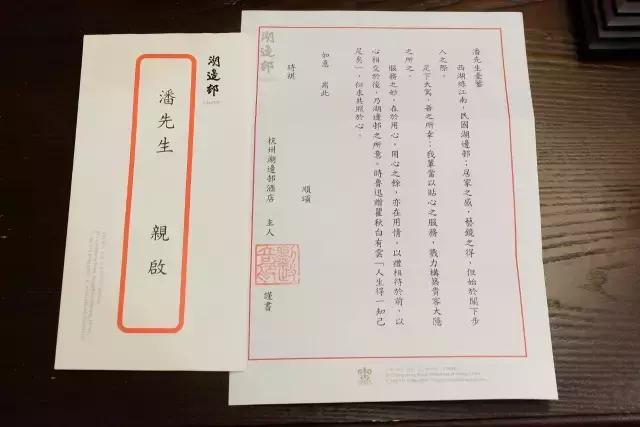 湖邊邨
潘先生 親啟
湖邊邨
潘先生臺鑒
西湖緣江南，民國湖邊邨；居家之感，藝鏡之得，但始於閣下步
入之際。
足下大駕，吾之所幸；我輩當以貼心之服務，戮力構築貴客大隱
之所之。
服務之妙，在於用心，用心之餘，亦在用情，以禮相待於前，以
心相交於後，乃湖邊邨之所意。時魯迅贈瞿秋白有雲「人生得一知己
足矣」，但求共照於心。
如意 耑此
順頌
時祺
杭州湖邊邨酒店 主人 謹書